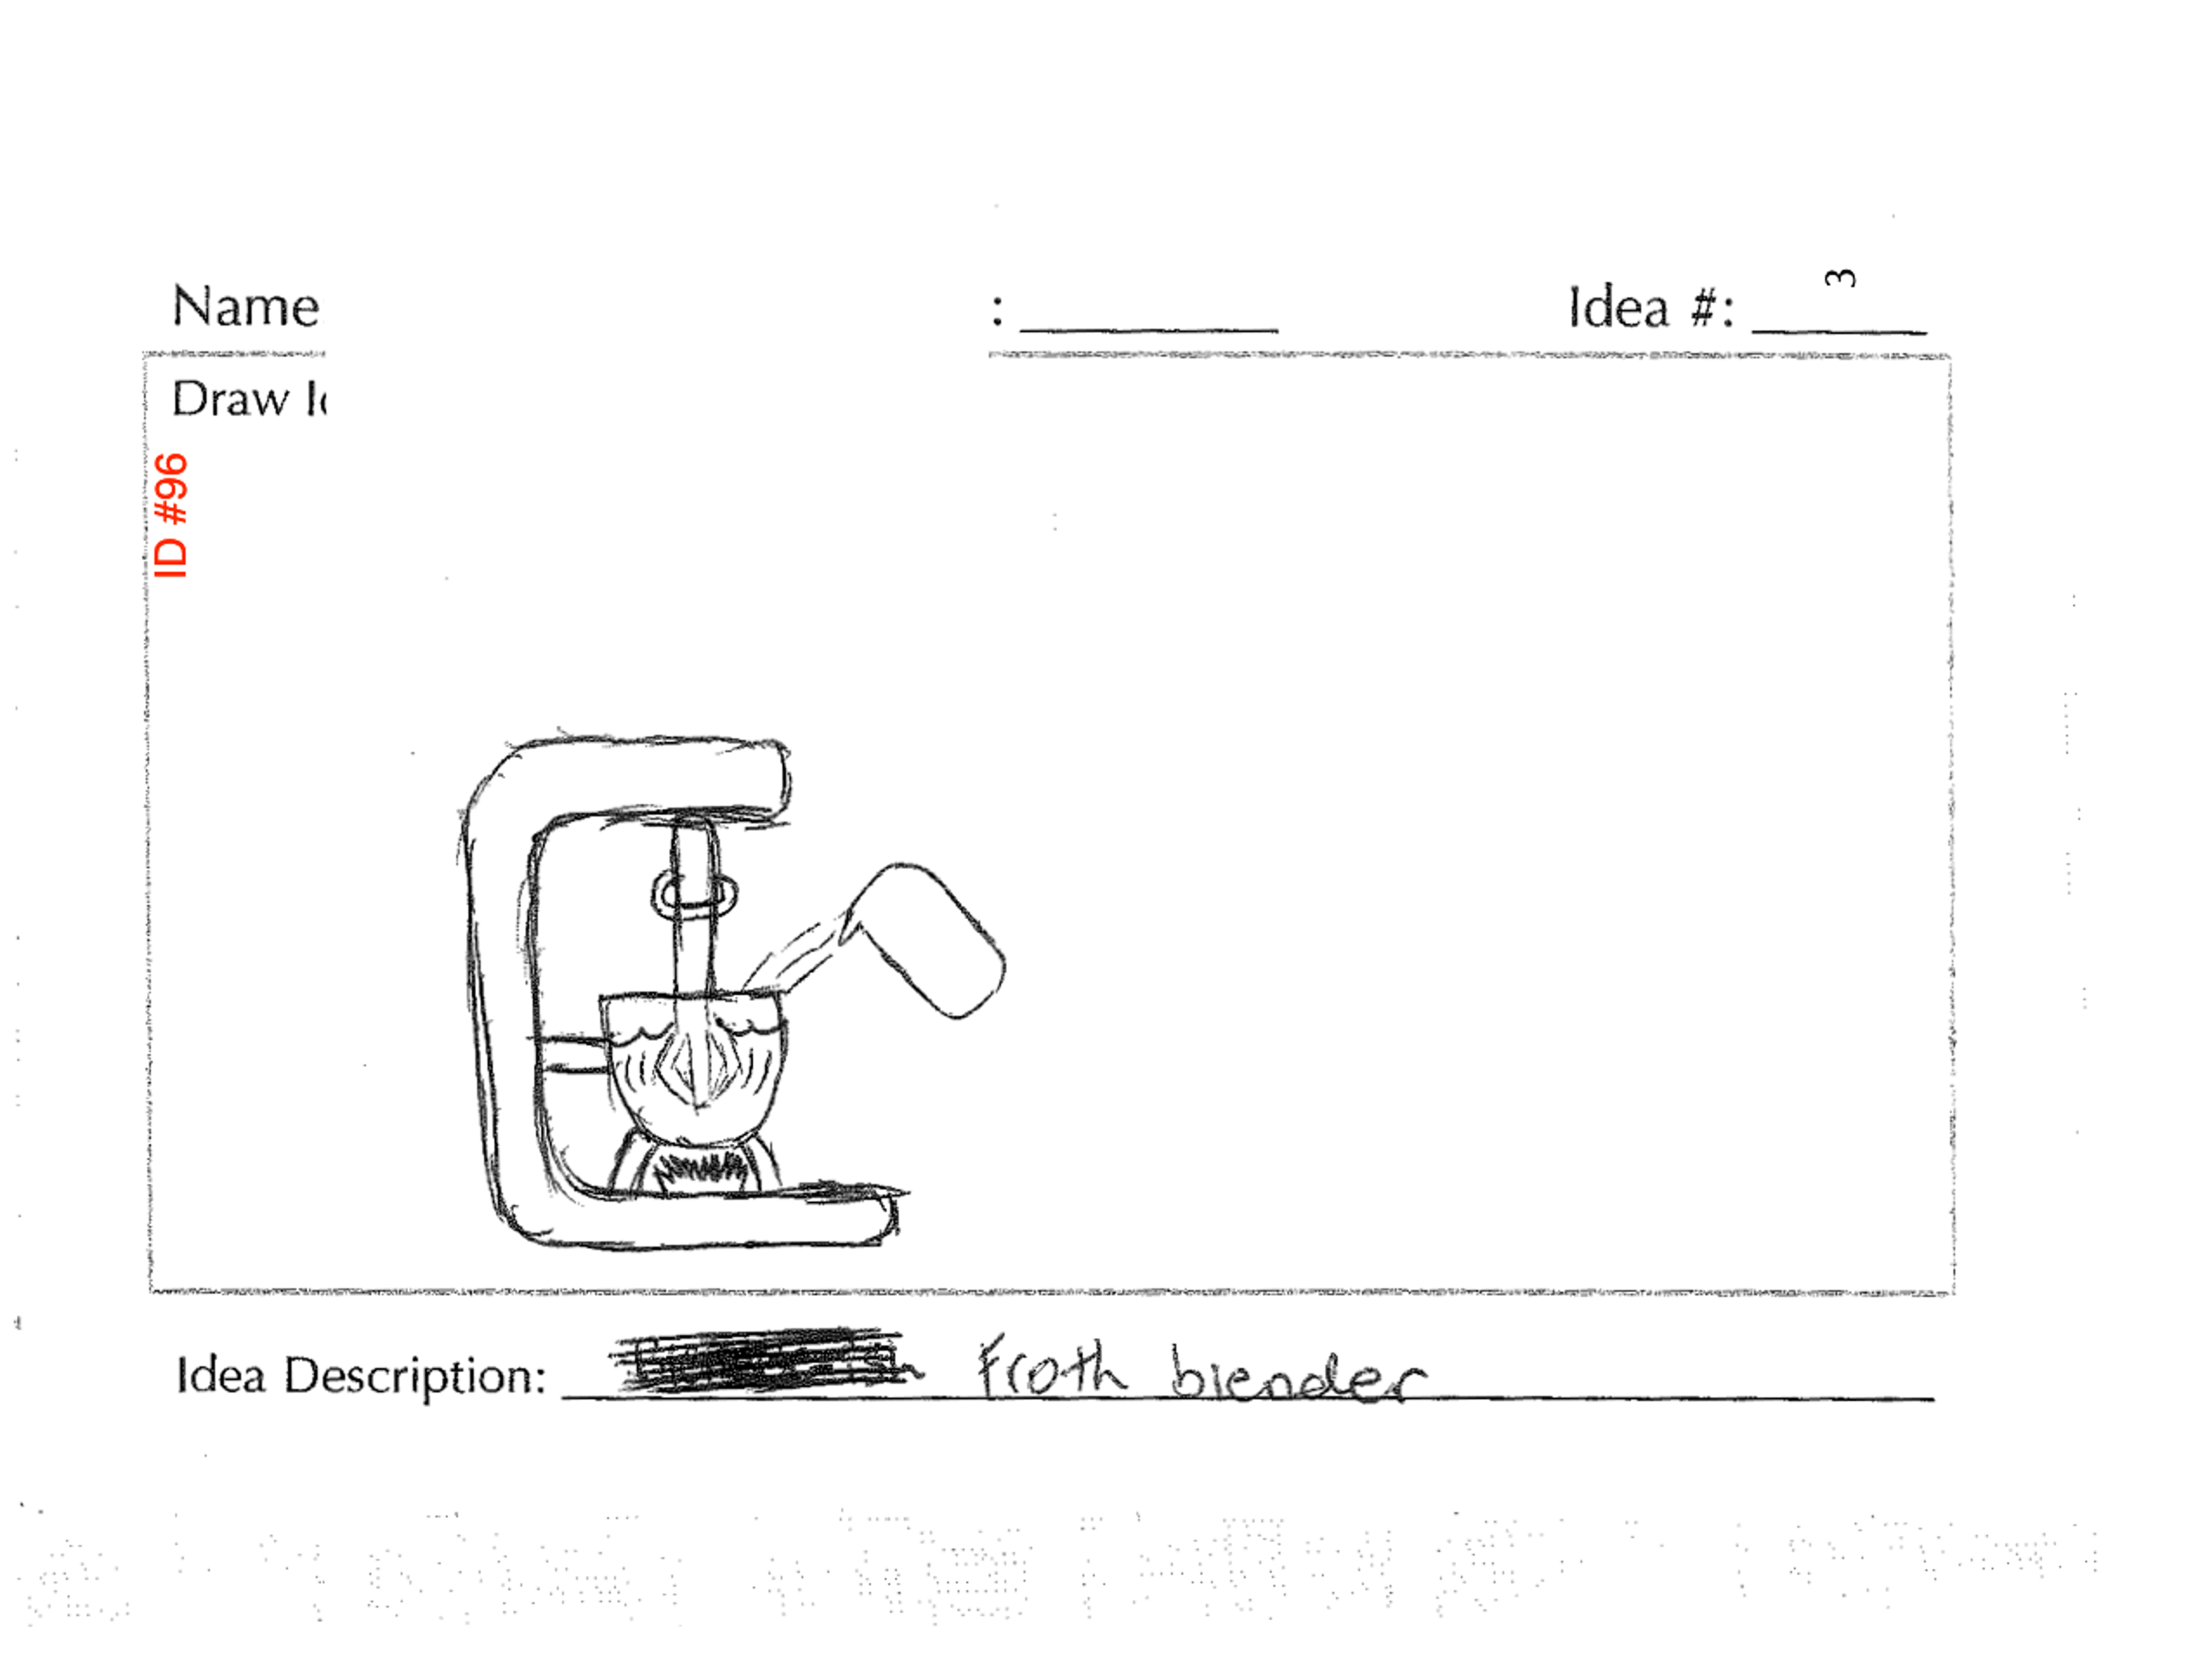 Name : Idea #: 3
Draw
ID #96
Idea Description: Froth blender